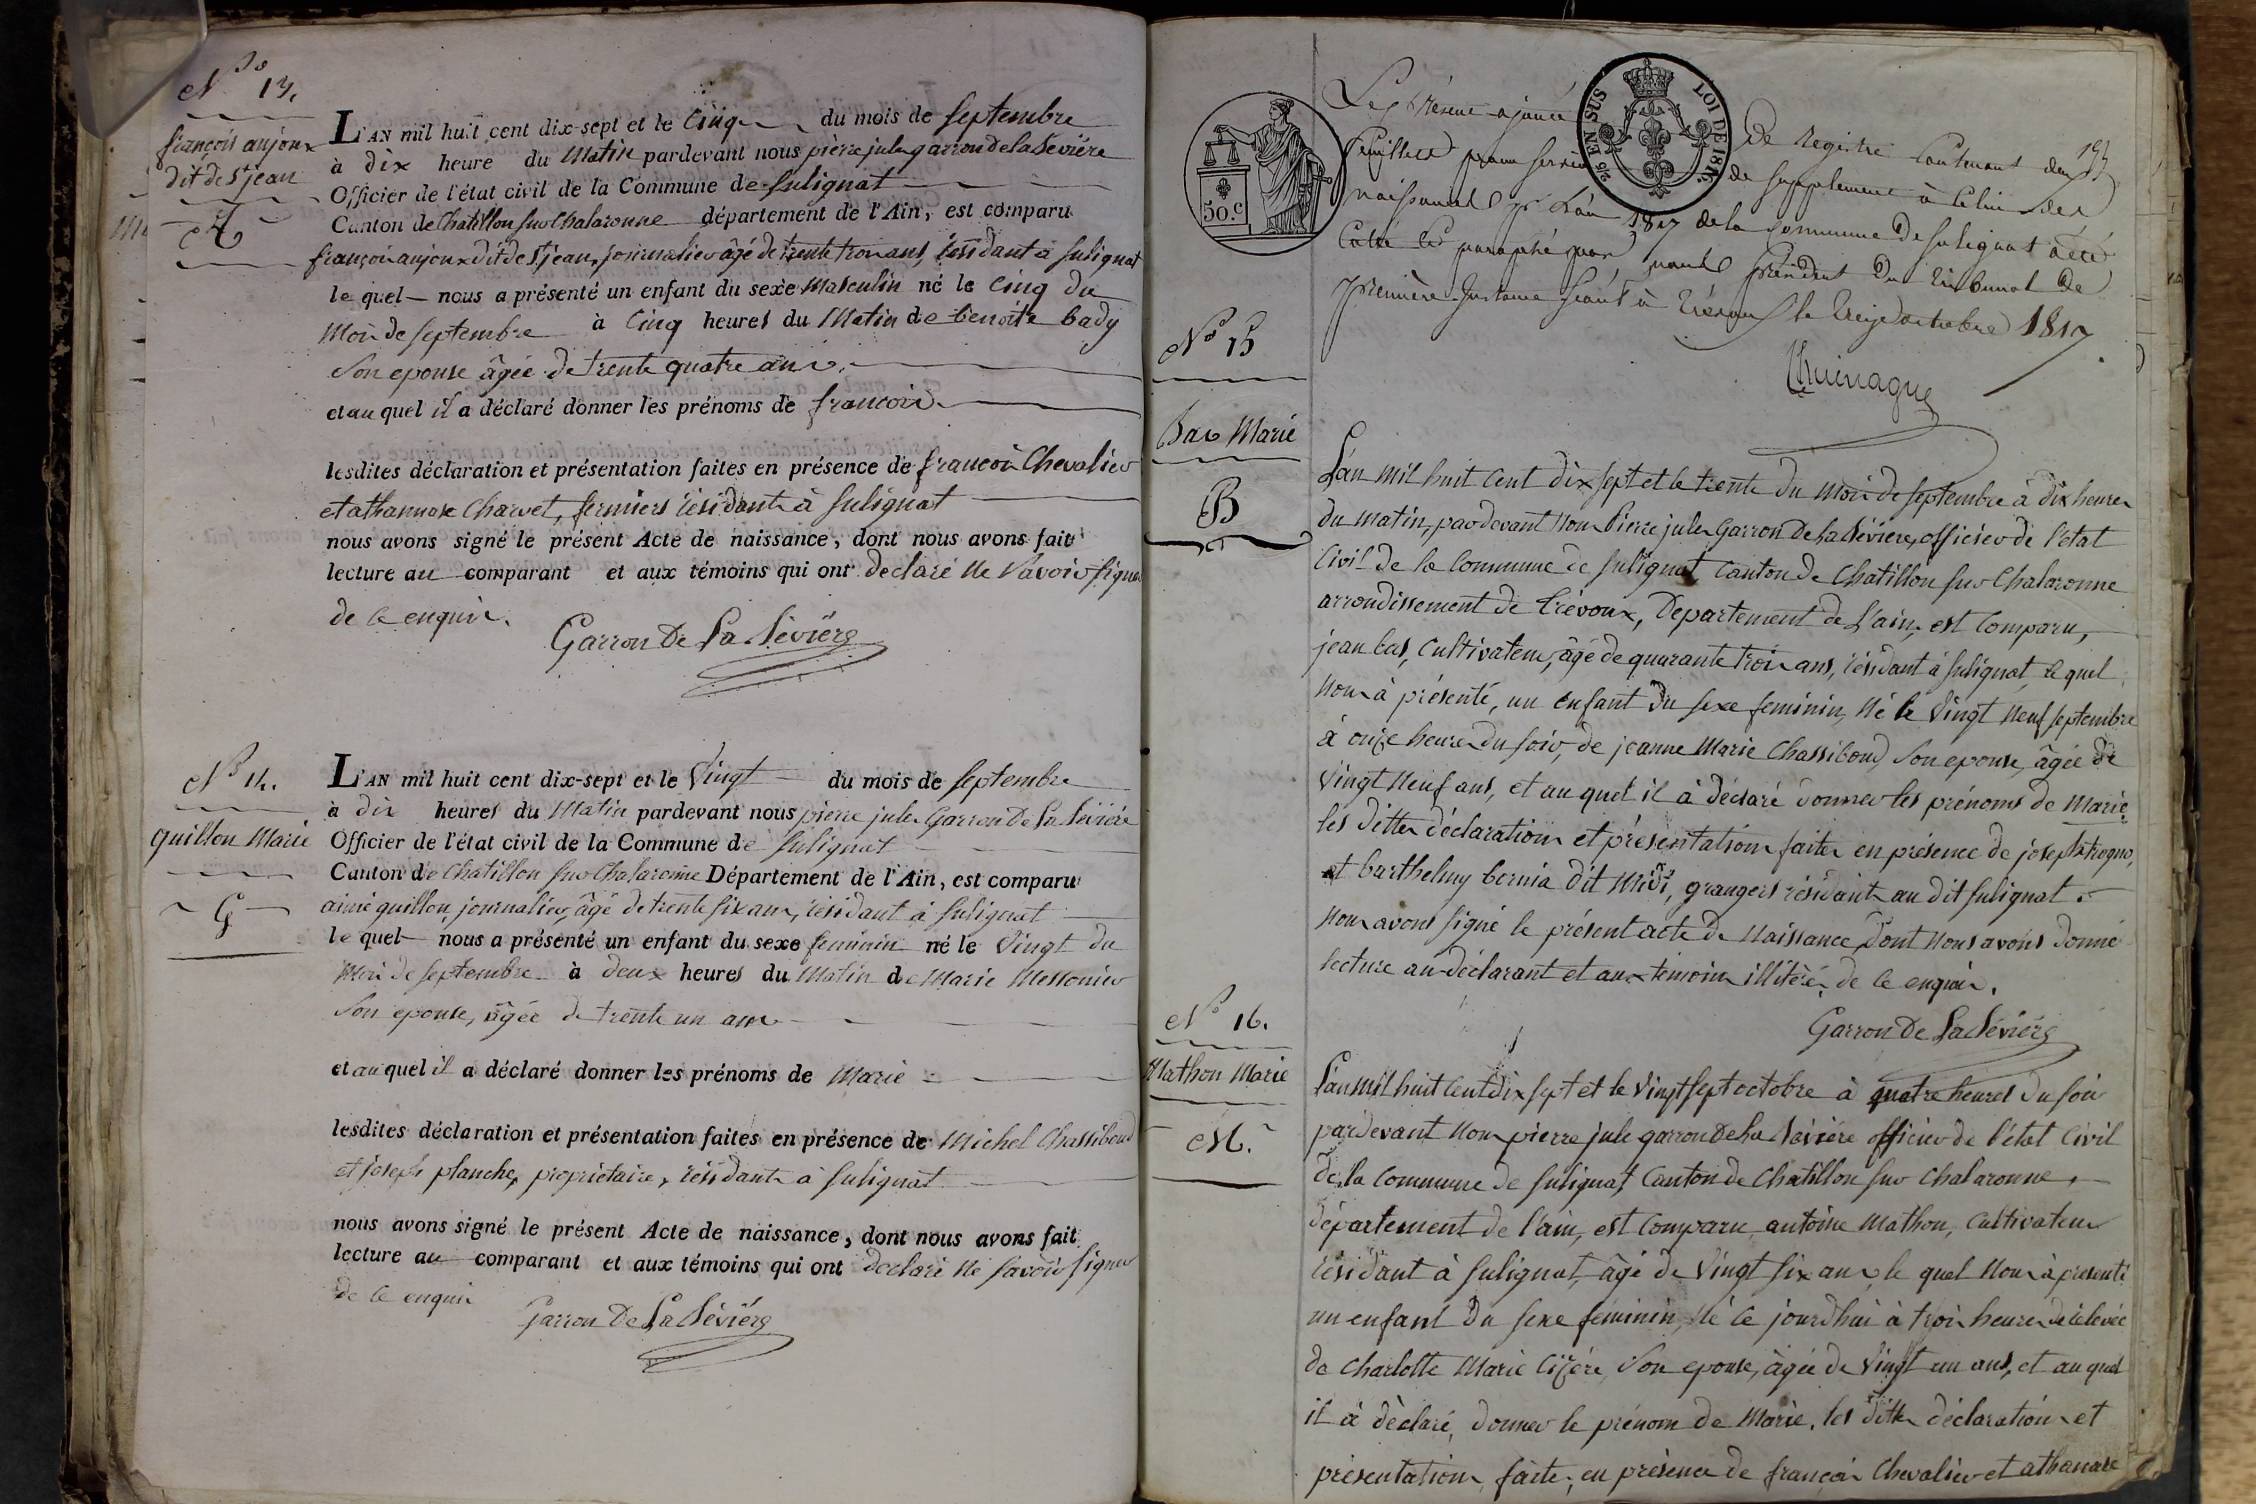 N° 13.
françois anjoux
dit de St jean
A
L'AN mil huit cent dix-sept et le Cinq du mois de Septembre
à dix heure du Matin pardevant nous pierre jules garron de la Sévière
Officier de l'état civil de la Commune de Sulignat
Canton de Chatillon sur Chalaronne département de l'Ain, est comparu
françois anjoux dit de St jean, journalier âgé de trente trois ans, résidant à Sulignat
le quel nous a présenté un enfant du sexe Masculin né le Cinq du
Mois de Septembre à Cinq heures du Matin de benoîte bady
Son epouse âgée de trente quatre ans.
et au quel il a déclaré donner les prénoms de françois
lesdites déclaration et présentation faites en présence de françois Chevalier
et athannase Charvet, fermiers résidants à Sulignat
nous avons signé le présent Acte de naissance, dont nous avons fait
lecture au comparant et aux témoins qui ont déclaré ne Savoir signer
de ce enquis.
Garron De La Sévière
N° 14.
Guillon Marie
G
L'AN mil huit cent dix-sept et le Vingt du mois de Septembre
à dix heures du Matin pardevant nous pierre jules Garron De La Sévière
Officier de l'état civil de la Commune de Sulignat
Canton de Chatillon sur Chalaronne Département de l'Ain, est comparu
aimé guillon, journalier, âgé de trente six ans, résidant à Sulignat
le quel nous a présenté un enfant du sexe feminin né le Vingt du
Mois de Septembre à deux heures du Matin de Marie Messonier
Son epouse, âgée de trente un ans
et au quel il a déclaré donner les prénoms de Marie
lesdites déclaration et présentation faites en présence de Michel Chassiboud
et joseph planche, propriétaire, résidants à Sulignat
nous avons signé le présent Acte de naissance, dont nous avons fait
lecture au comparant et aux témoins qui ont déclaré ne Savoir signer
de ce enquis
Garron De La Sévière
50.C
2/5 EN SUS
LOI DE 1816.
Le présent ajouté de Registre Contenant deux
feuillets pour servir de supplément à Celui des
naissances pr l'an 1817 de la Commune de Sulignat a été
Coté et paraphé par nous président du tribunal de
première Instance séant à Trévoux le treize octobre 1817
N° 15
Bas Marie
B
L'an mil huit Cent dix sept et le trente du Mois de Septembre à dix heures
du matin, par devant Nous Pierre jules Garron De La Sévière, officier de l'état
Civil de la Commune de Sulignat, Canton de Chatillon sur Chalaronne
arrondissement de Trévoux, Département de L'ain, est Comparu,
jean bas, Cultivateur, âgé de quarante trois ans, résidant à Sulignat, le quel
Nous à présenté, un enfant du sexe feminin, Né le Vingt Neuf septembre
à onze heures du soir, de jeanne Marie Chassiboud, Son epouse, âgée de
Vingt Neuf ans, et au quel il à déclaré donner les prénoms de Marie.
les dittes déclaration et présentation faites en présence de joseph
et barthelmy bernia dit Midi, grangers résidants au dit Sulignat.
Nous avons signé le présent acte de Naissance, dont Nous avons donné
lecture au déclarant et aux témoins illitérés de ce enquis.
Garron De La Sévière
N° 16.
Mathon Marie
M.
L'an mil huit Cent dix sept et le Vingt Sept octobre à quatre heures du soir
pardevant Nous pierre jule garron de La Sévière officier de l'état Civil
de la Commune de Sulignat, Canton de Chatillon sur Chalaronne,
département de l'ain, est Comparu antoine Mathon, Cultivateur
résidant à Sulignat, âgé de Vingt six ans, le quel Nous à présenté
un enfant du sexe feminin, Né ce jourd'hui à trois heures de relevée
de Charlotte Marie Cizére, Son epouse, âgée de Vingt un ans, et au quel
il à déclaré, donner le prénom de Marie, les dittes déclaration et
présentation, faite, en présence de françois Chevalier et athanase